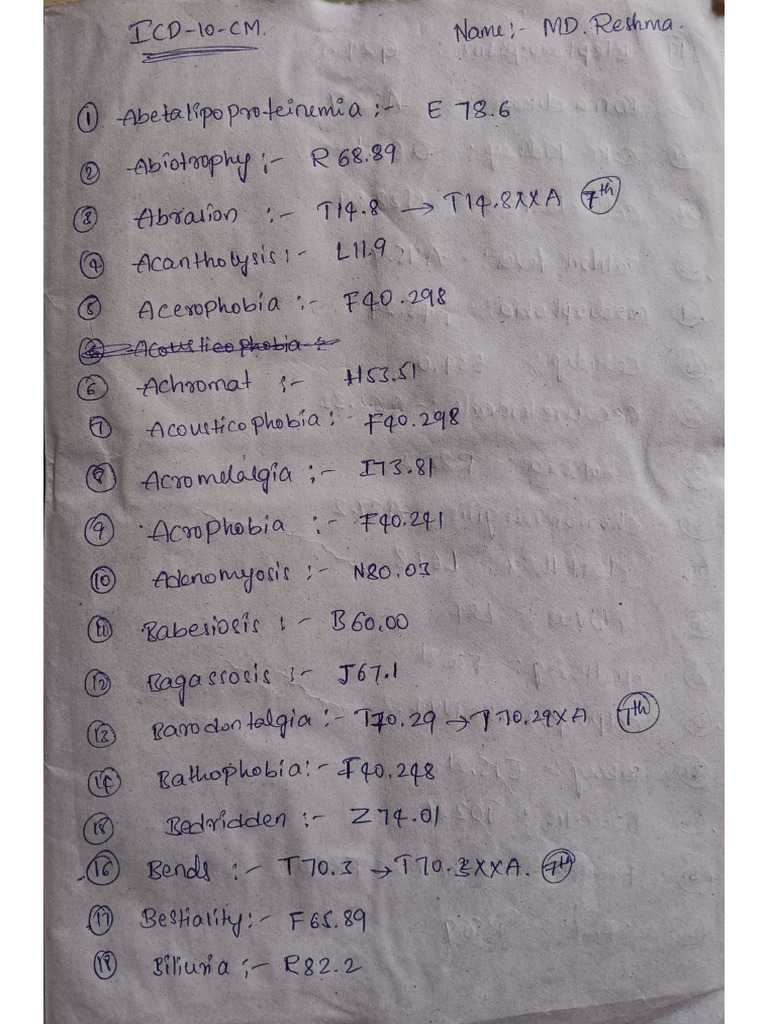 ICD-10-CM.
Name:- MD. Reshma.
① Abetalipoproteinemia :- E 78.6
② Abiotrophy :- R 68.89
③ Abrasion :- T14.8 → T14.8XXA 7th
④ Acantholysis :- L11.9
⑤ Acerophobia :- F40.298
⑥ Acousticophobia :-
⑥ Achromat :- H53.51
⑦ Acousticophobia :- F40.298
⑧ Acromelalgia :- I73.81
⑨ Acrophobia :- F40.241
⑩ Adenomyosis :- N80.03
⑪ Babesiosis :- B60.00
⑫ Bagassosis :- J67.1
⑬ Barodontalgia :- T70.29 → T70.29XA 7th
⑭ Bathophobia :- F40.248
⑮ Bedridden :- Z74.01
⑯ Bends :- T70.3 → T70.3XXA. 7th
⑰ Bestiality :- F65.89
⑱ Biliuria :- R82.2